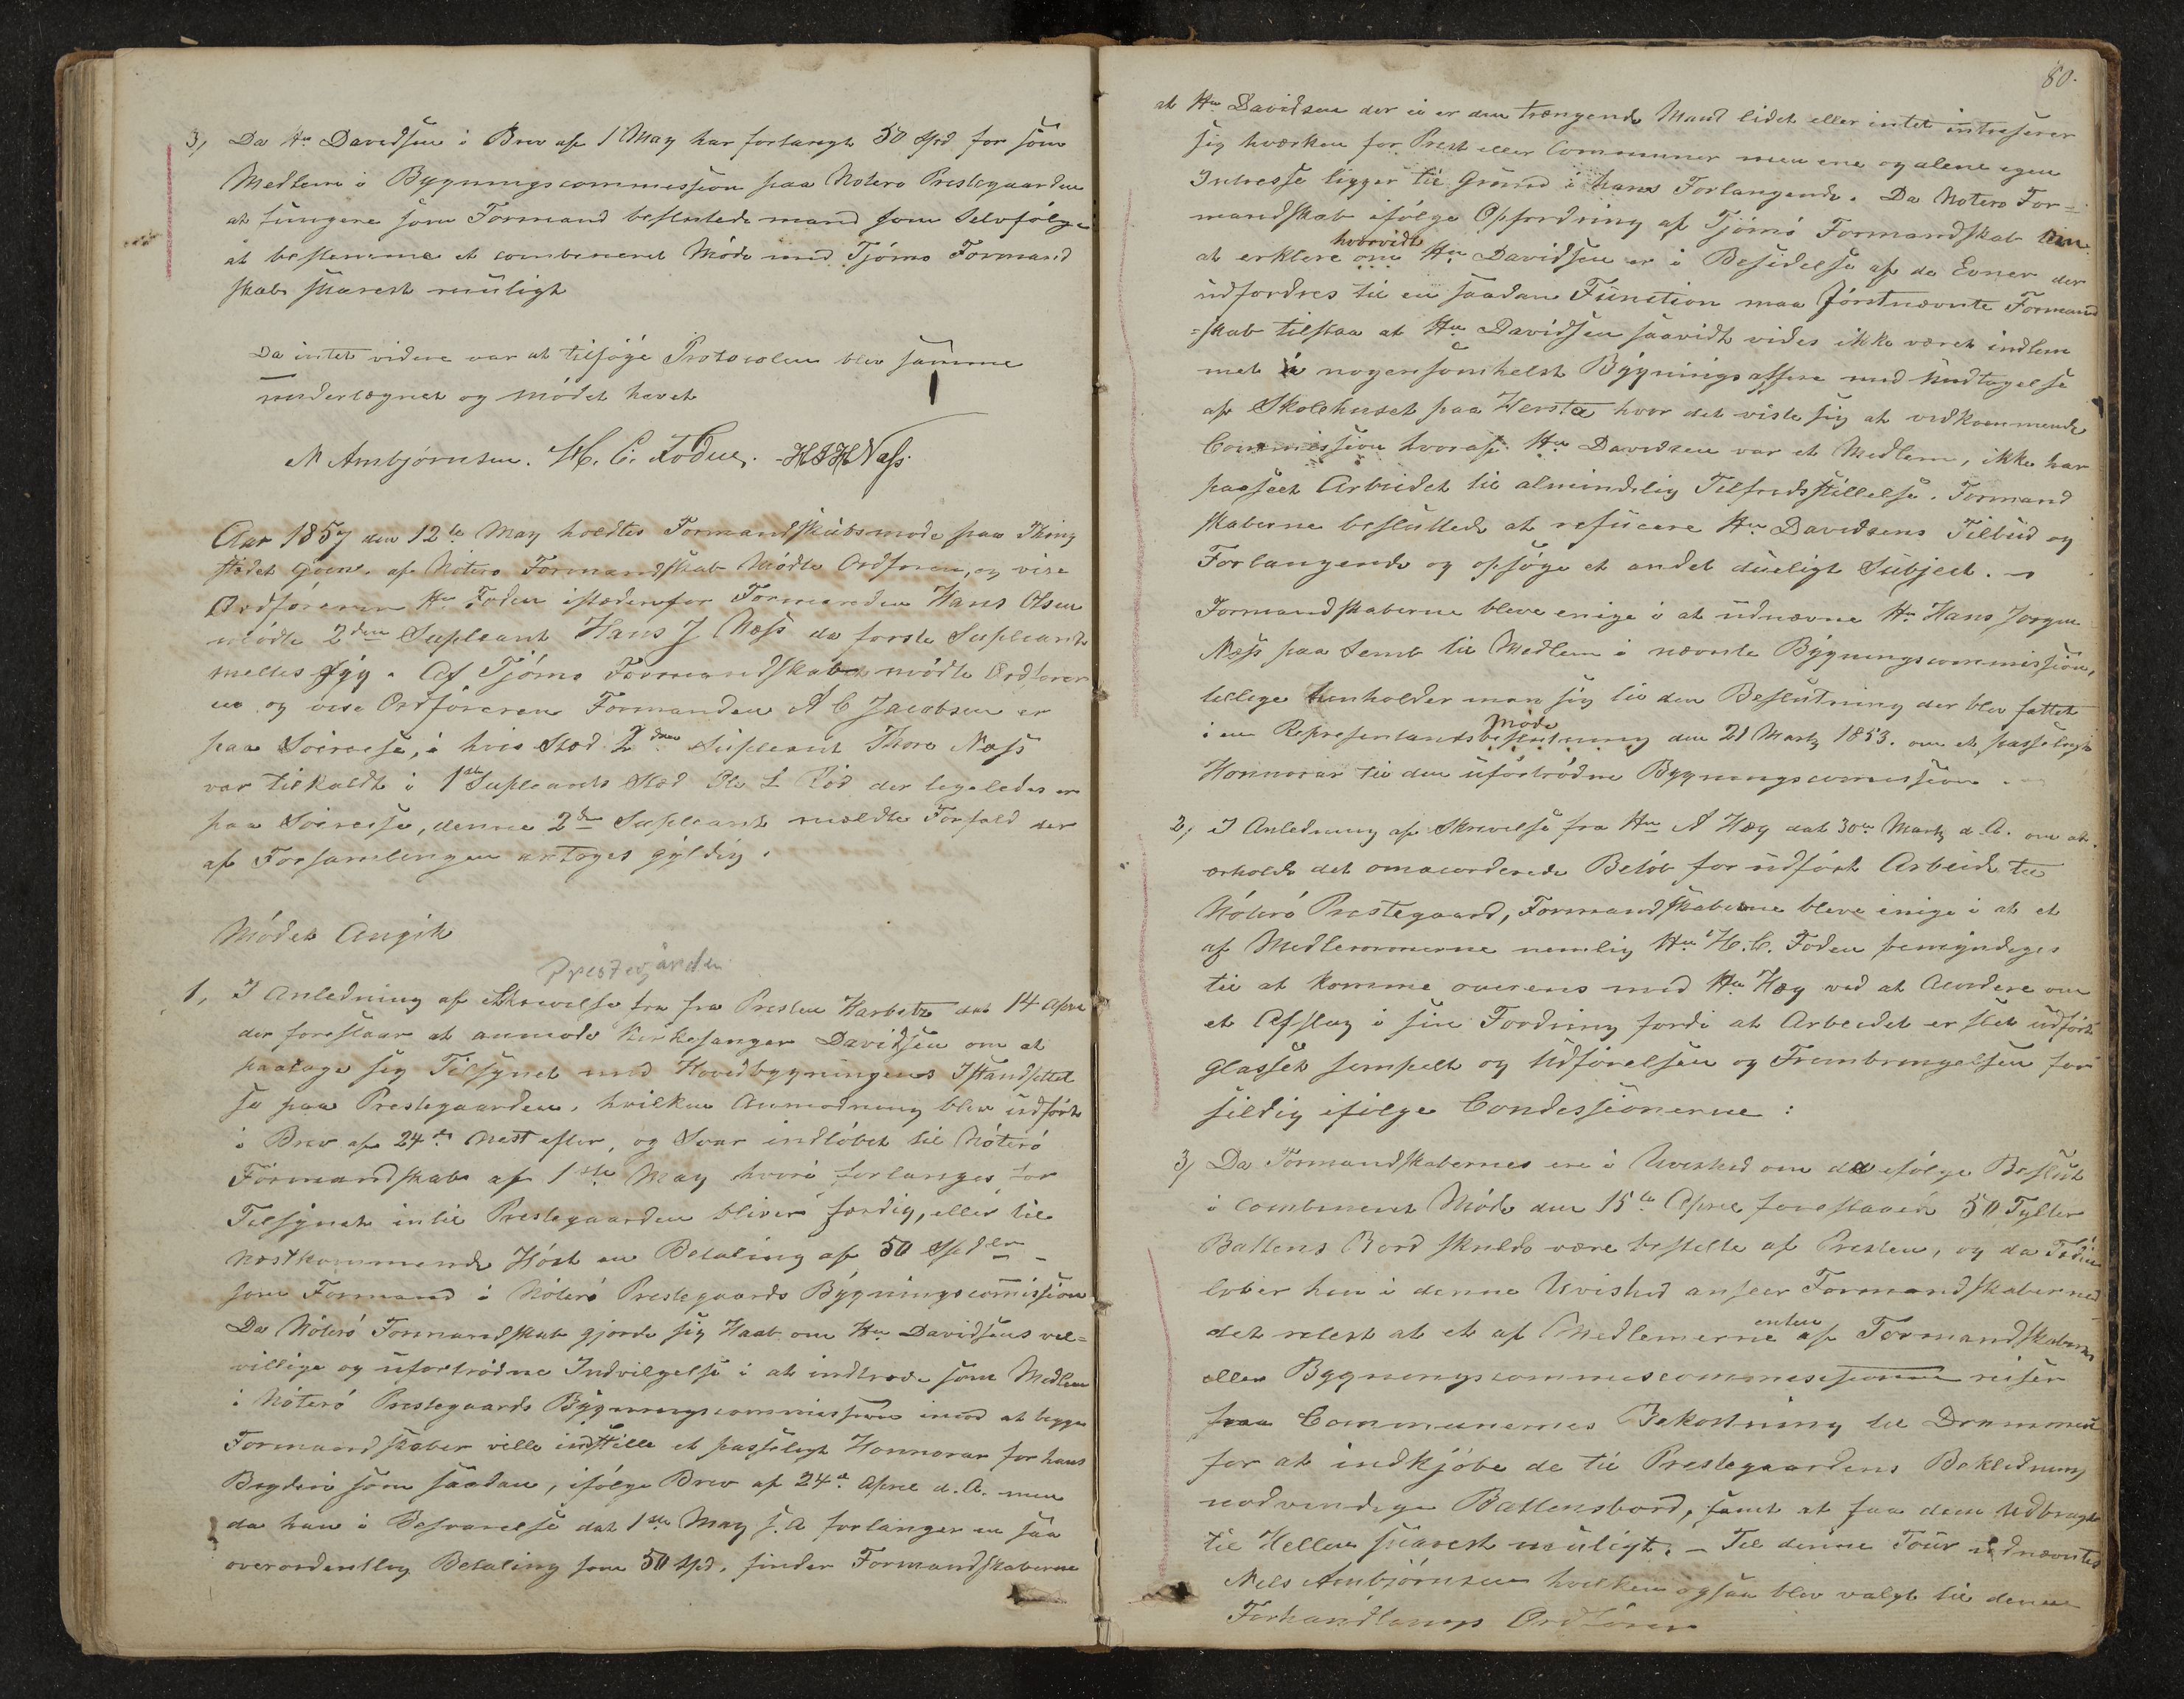 3, Da Hr Davidsen i Brev af 1 May har forlangt 50 Spd for som
Medlem i Bygningscommission paa Nøterø Prestegaarden
at fungere som Formand besluttede mand som Selvfølge
at bestemme et combineret Møde med Tjømø Formand
skab snarest muligt
Da intet videre var at tilføye Protocolen blev samme
undertegnet og mødet hævet
N Ambjørnsen. H. C. Foduen. HJHNæss.
Aar 1857 den 12te May holdtes Formandskabsmøde paa Thing
stedet Goen. af Nøterø Formandskab Mødte Ordføren, og vise
Ordføreren Hr Foden istædenfor Formanden Hans Olsen
mødte 2den Supleant Hans J Næss da første Supleant
meltes syg. Af Tjømø Formandskab mødte Ordfører
en og vise Ordføreren Formanden A C Jacobsen er
paa Soireise, i hvis Sted 2den Supleant Thore Næss
var tilkaldt i 1ste Supleants Sted Ole L Rød der ligeledes er
paa Soireise, denne 2den Supleant meldte Forfald der
af Forsamlingen antoges gyldig.
Mødet Angik
Prestegården
1, I Anledning af Skrivelse fra fra Presten Harbitz dat 14 April
der foreslaar at anmode Kirkesanger Davidsen om at
paatage sig Tilsynet med Hovedbygningens Istandsettel
se paa Prestegaarden, hvilken Anmodning blev udført
i Brev af 24de nest efter, og Svar indløbet til Nøterø
Formandskab af 1ste May hvori forlanges for
Tilsynet intil Prestegaarden bliver færdig, eller til
nestkommende Høst en Betaling af 50 Spdler
som Formand i Nøterø Prestegaards Bygningscomission
Da Nøterø Formandskab gjorde sig Haab om Hr Davidsens vel=
villige og ufortrødne Indvilgelse i at indtræde som Medlem
i Nøterø Prestegaards Bygningscommission imod at begge
Formandskaber ville indstille et passeligt Honnorar for hans
Bryderi som saadan, ifølge Brev af 24de April d.A. men
da han i Besvarelse dat 1ste May s.A forlanger en saa
overordentlig Betaling som 50 Spd. finder Formandskaberne
80.
at Hr Davidsen der ei er den trængende Mand lidet eller intet intreserer
sig hværken for Prest eller Communer men ene og alene egen
Intresse ligger til Grund i hans Forlangende. Da Nøterø For=
mandskab ifølge Opfordring af Tjømø Formandskab
at erklere om hvorvidt Hr Davidsen er i Besidelse af de Evner der
udfordres til en saadan Function maa førstnævnte Formand
=skab tilstaa at Hr Davidsen saavidt vides ikke været indlem
met i nogensomhelst Bygningsaffere med Undtagelse
af Skolehuset paa Hersta hvor det viste sig at vedkommende
Commission hvoraf Hr Davidsen var et Medlem, ikke har
passeet Arbeidet til almindelig Tilfredsstillelse. Formand
skaberne besluttede at refucere Hr Davidsens Tilbud og
Forlangende og opsøge et andet dueligt Subject. –
Formandskaberne bleve enige i at udnævne Hr Hans Jørgen
Næss paa Semb til Medlem i nævnte Bygningscommission,
tillige henholder man sig til den Beslutning der blev fattet
i en Representantsbeslutning Møde den 21 Marts 1853. om et passeligt
Honnorar til den ufortrødne Bygningscomission.
2, I Anledning af Skrivelse fra Hr A Hæg dat 30te Marts d.A. om at
erholde det omacorderede Beløb for udført Arbeide til
Nøterø Prestegaard, Formandskaberne bleve enige i at et
af Medlemmerne nemlig Hr H.C. Foden bemyndiges
til at komme overens med Hr Hæg ved at Acordere om
et Afslag i sin Fordring fordi at Arbeidet er slet udført
Glasset simpelt og Udførelsen og Frembringelsen for
sildig ifølge Condissionerne :
3, Da Formandskabernes ere i Uvished om de ifølge Beslut
i combineret Møde den 15te April foreslaaede 50 Tylter
Battens Bord skulde være bestelte af Presten, og da Tiden
løber hen i denne Uvished anseer Formandskaberne
det retest at et af Medlemerne enten af Formandskaberne
eller Bygningscommiscommissionen reiser
paa Communernes Bekostning til Drammen
for at indkjøbe de til Prestegaardens Bekledning
nødvendige Battensbord, samt at faa dem udbragt
til Hellen snarest muligt. – Til denne Tour udnævntes
Nils Ambjørnsen hvilken ogsaa blev valgt til denne
Forhandlings Ordfører